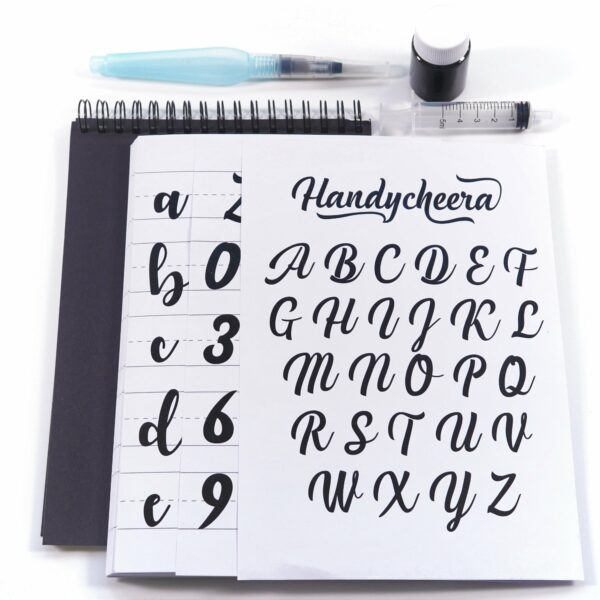 5ml 4 3 2 1
Handycheera
A B C D E F
G H I J K L
M N O P Q
R S T U V
W X Y Z
a
b 0
c 3
d 6
e 9